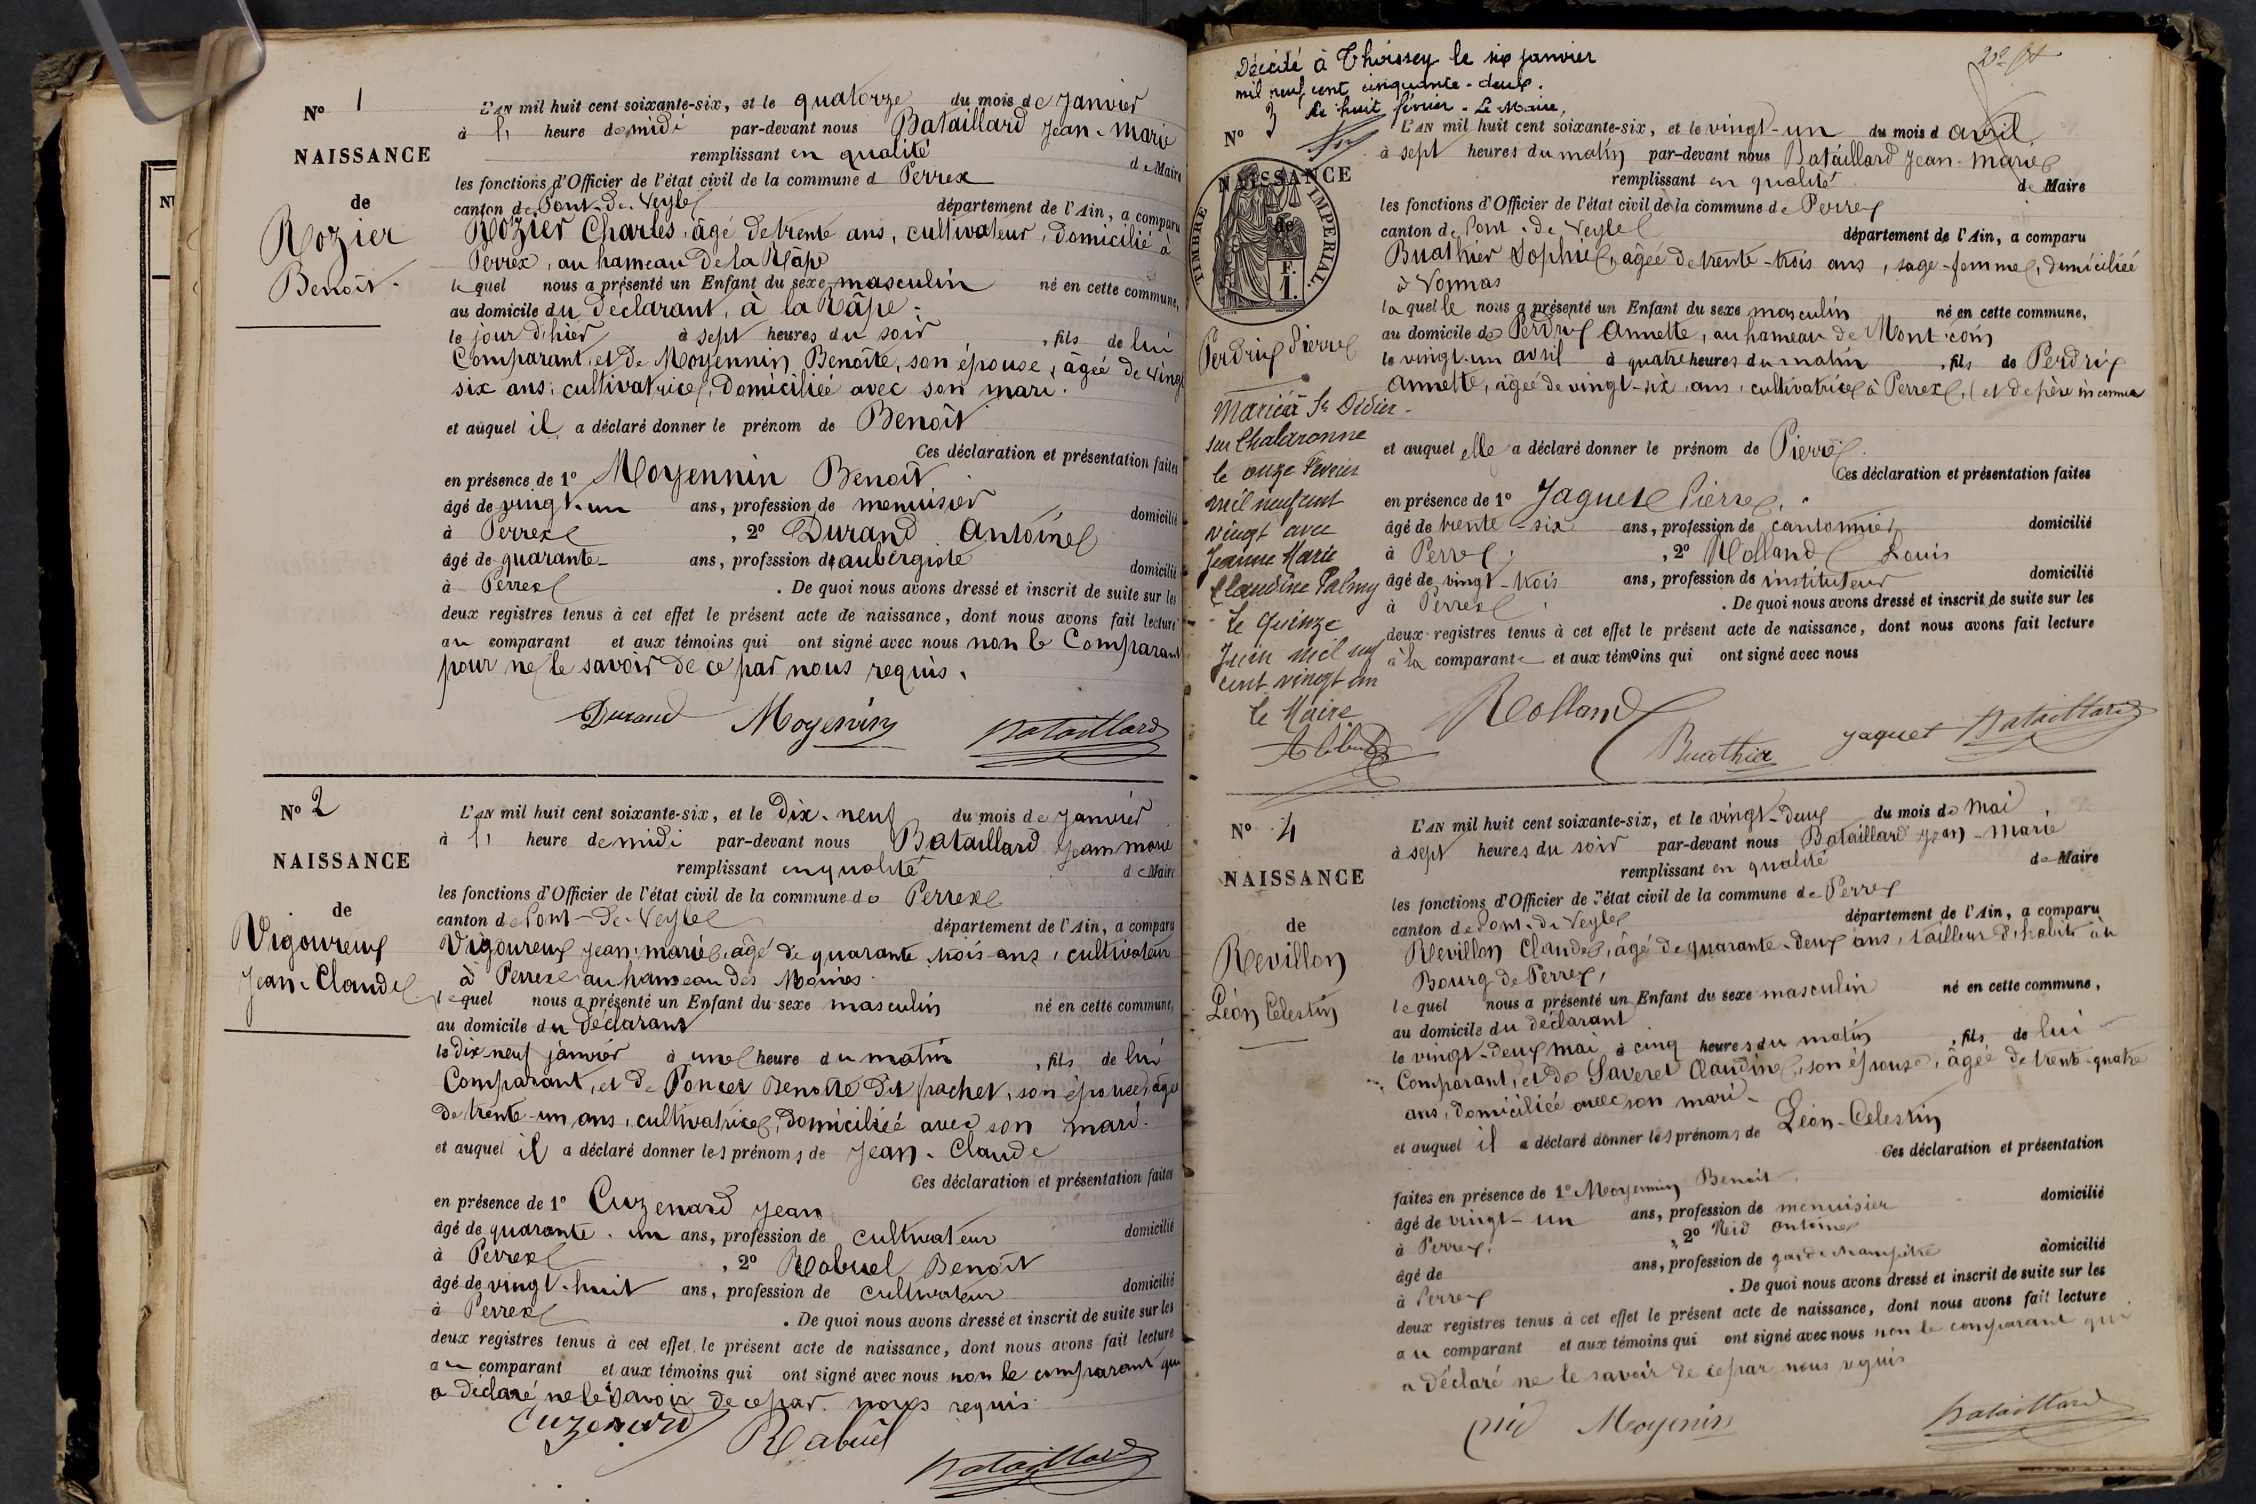 N° 1
NAISSANCE
de
Rozier
Benoît.
L'AN mil huit cent soixante-six, et le quatorze du mois de Janvier
à heure de midi par-devant nous Bataillard Jean-Marie
remplissant en qualité de Maire
les fonctions d'Officier de l'état civil de la commune d Perrex
canton de Pont-de-Veyle département de l'Ain, a comparu
Rozier Charles, âgé de trente ans, cultivateur, domicilié à
Perrex, au hameau de la Râpe
lequel nous a présenté un Enfant du sexe masculin né en cette commune,
au domicile du déclarant, à la Râpe.
le jour d'hier à sept heures du soir , fils de lui
Comparant, et de Moyennin Benoîte, son épouse, âgée de vingt
six ans, cultivatrice, domiciliée avec son mari.
et auquel il a déclaré donner le prénom de Benoît
Ces déclaration et présentation faites
en présence de 1° Moyennin Benoît
âgé de vingt-un ans, profession de menuisier domicilié
à Perrex , 2° Durand Antoine
âgé de quarante ans, profession d'aubergiste domicilié
à Perrex . De quoi nous avons dressé et inscrit de suite sur les
deux registres tenus à cet effet le présent acte de naissance, dont nous avons fait lecture
au comparant et aux témoins qui ont signé avec nous non le Comparant
pour ne le savoir de ce par nous requis.
Durand Moyenin Bataillard
N° 2
NAISSANCE
de
Vigoureux
Jean-Claude
L'AN mil huit cent soixante-six, et le dix-neuf du mois de Janvier
à heure de midi par-devant nous Bataillard Jean marie
remplissant en qualité de Maire
les fonctions d'Officier de l'état civil de la commune de Perrex
canton de Pont-de-Veyle département de l'Ain, a comparu
Vigoureux Jean-marie, âgé de quarante trois ans, cultivateur
à Perrex au hameau des Moines
lequel nous a présenté un Enfant du sexe masculin né en cette commune,
au domicile du déclarant
le dix-neuf janvier à une heure du matin , fils de lui
Comparant, et de Poncet Benoîte dit Prachet, son épouse, âgée
de trente-un ans, cultivatrice, domiciliée avec son mari.
et auquel il a déclaré donner les prénoms de Jean-Claude
Ces déclaration et présentation faites
en présence de 1° Cuzenard Jean
âgé de quarante-un ans, profession de cultivateur domicilié
à Perrex , 2° Rabuel Benoît
âgé de vingt-huit ans, profession de cultivateur domicilié
à Perrex . De quoi nous avons dressé et inscrit de suite sur les
deux registres tenus à cet effet le présent acte de naissance, dont nous avons fait lecture
au comparant et aux témoins qui ont signé avec nous non le comparant qui
a déclaré ne le savoir de ce par nous requis
Cuzenard Rabuel
Bataillard
Décédé à Thoissey le six janvier
mil neuf cent cinquante-deux.
Le huit février. Le Maire,
N° 3
NAISSANCE
de
TIMBRE IMPERIAL
F.
1.
Perdrix Pierre
Marié à St Didier
sur Chalaronne
le onze Février
mil neuf cent
vingt avec
Jeanne Marie
Claudine Palmy
Le Quinze
Juin mil neuf
cent vingt un
Le Maire
L'AN mil huit cent soixante-six, et le vingt-un du mois d avril
à sept heures du matin par-devant nous Bataillard Jean-Marie
remplissant en qualité de Maire
les fonctions d'Officier de l'état civil de la commune de Perrex
canton de Pont-de-Veyle département de l'Ain, a comparu
Buathier Sophie, âgée de trente-trois ans, sage-femme, domiciliée
à Vonnas
laquelle nous a présenté un Enfant du sexe masculin né en cette commune,
au domicile de Perdrix Annette, au hameau de Mont-coin
le vingt-un avril à quatre heures du matin , fils de Perdrix
Annette, âgée de vingt-six ans, cultivatrice à Perrex, et de père inconnu
et auquel elle a déclaré donner le prénom de Pierre
Ces déclaration et présentation faites
en présence de 1° Jaquet Pierre.
âgé de trente-six ans, profession de cantonnier domicilié
à Perrex , 2° Rolland Louis
âgé de vingt-trois ans, profession de instituteur domicilié
à Perrex . De quoi nous avons dressé et inscrit de suite sur les
deux registres tenus à cet effet le présent acte de naissance, dont nous avons fait lecture
à la comparante et aux témoins qui ont signé avec nous
Rolland Buathier Jaquet Bataillard
N° 4
NAISSANCE
de
Revillon
Léon Celestin
L'AN mil huit cent soixante-six, et le vingt-deux du mois de Mai
à sept heures du soir par-devant nous Bataillard Jean-Marie
remplissant en qualité de Maire
les fonctions d'Officier de l'état civil de la commune de Perrex
canton de Pont-de-Veyle département de l'Ain, a comparu
Revillon Claude, âgé de quarante-deux ans, tailleur d'habits au
Bourg de Perrex,
lequel nous a présenté un Enfant du sexe masculin né en cette commune,
au domicile du déclarant
le vingt-deux mai à cinq heures du matin , fils de lui
Comparant, et de Saveret Claudine, son épouse, âgée de trente-quatre
ans, domiciliée avec son mari-
et auquel il a déclaré donner les prénoms de Léon-Celestin
Ces déclaration et présentation
faites en présence de 1° Moyennin Benoit
âgé de vingt-un ans, profession de menuisier domicilié
à Perrex. , 2° Nid Antoine
âgé de ans, profession de garde champêtre domicilié
à Perrex . De quoi nous avons dressé et inscrit de suite sur les
deux registres tenus à cet effet le présent acte de naissance, dont nous avons fait lecture
au comparant et aux témoins qui ont signé avec nous non le comparant qui
a déclaré ne le savoir de ce par nous requis
Nid Moyenin Bataillard